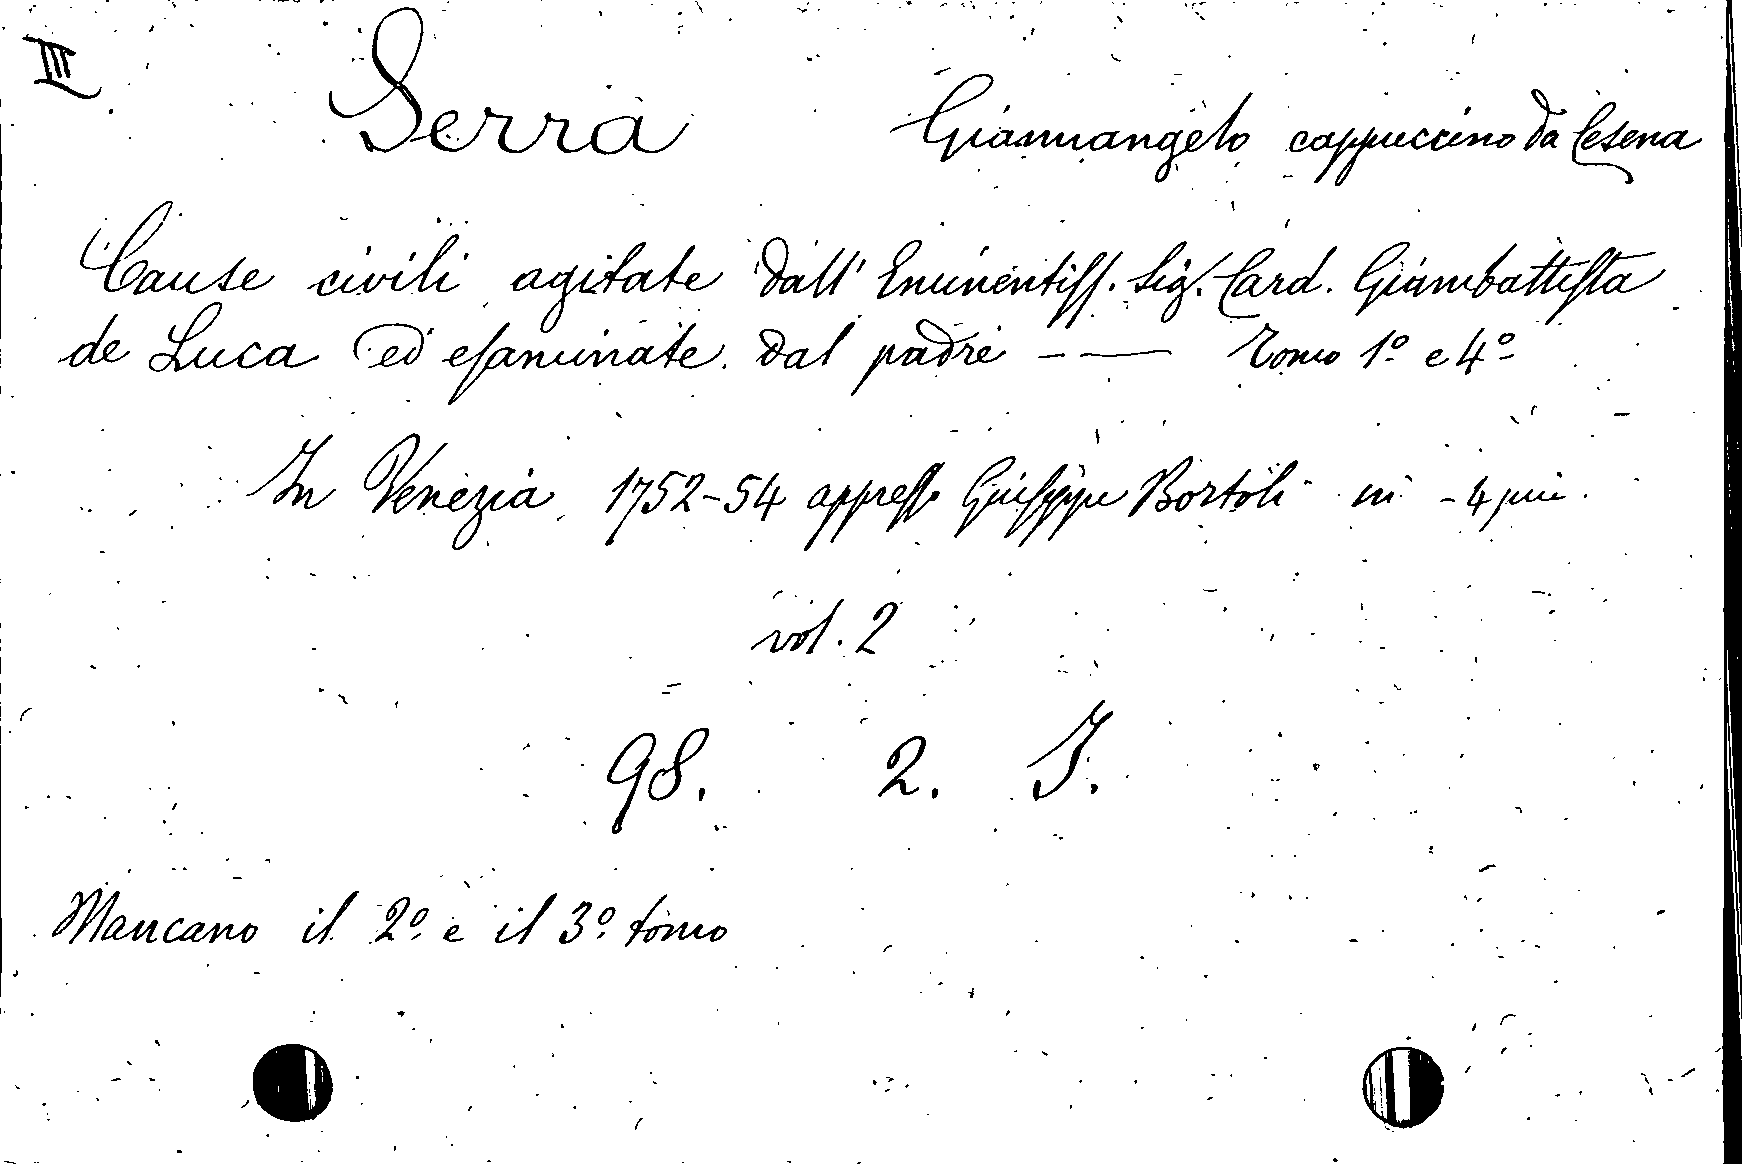 III
Serra Giannangelo cappuccino da Cesena
Cause civili agitate dall' Eminentiss. Sig. Card. Giambattista
de Luca ed esaminate dal padre - — Tomo 1º e 4º
In Venezia, 1752-54 appresso Giuseppe Bortoli in -4
vol. 2
98. 2. I.
Mancano il 2º e il 3º tomo